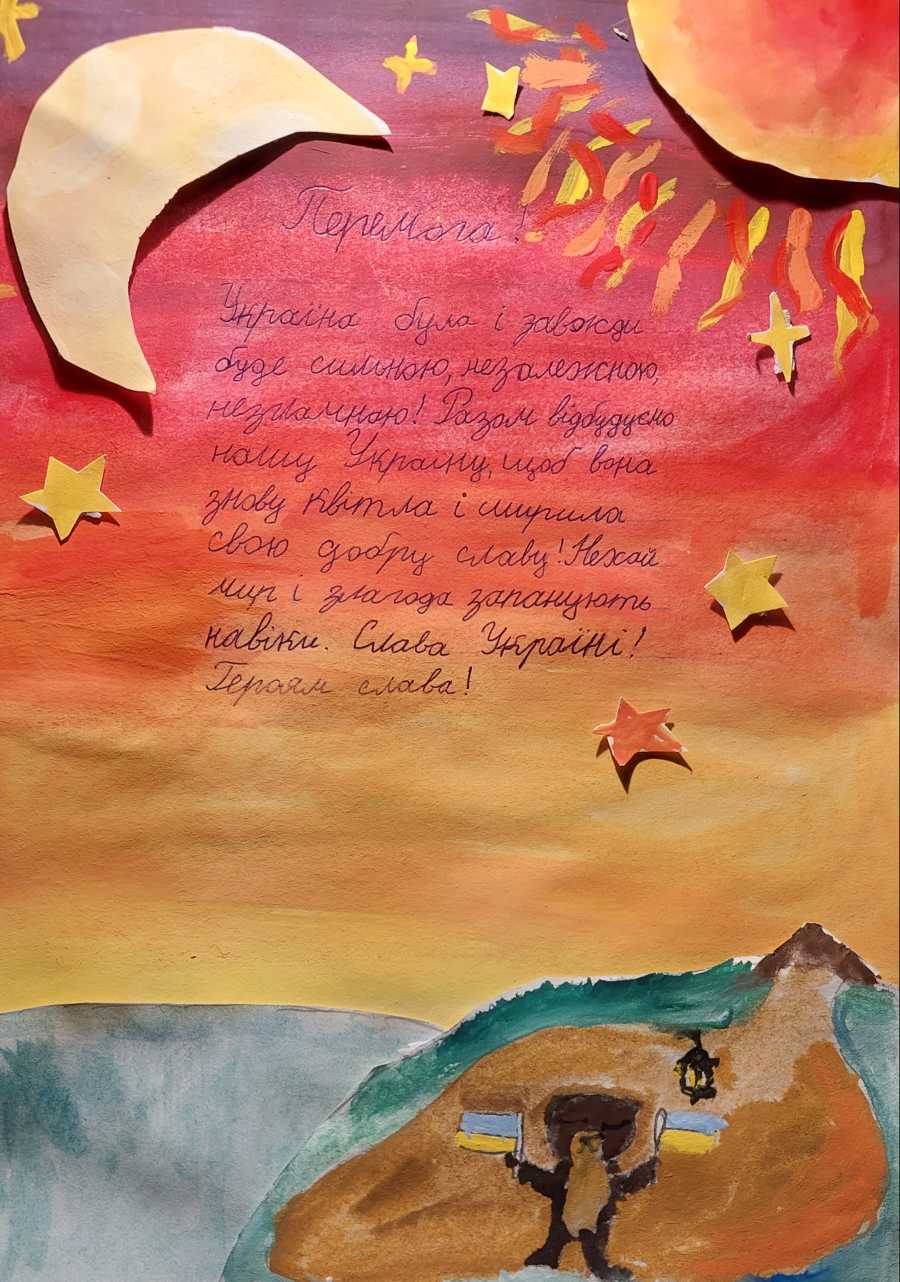 Перемога!
Україна була і завжди
буде сильною, незалежною,
незламною! Разом відбудуємо
нашу Україну, щоб вона
знову квітла і ширила
свою добру славу! Нехай
мир і злагода запанують
навіки. Слава Україні!
Героям слава!